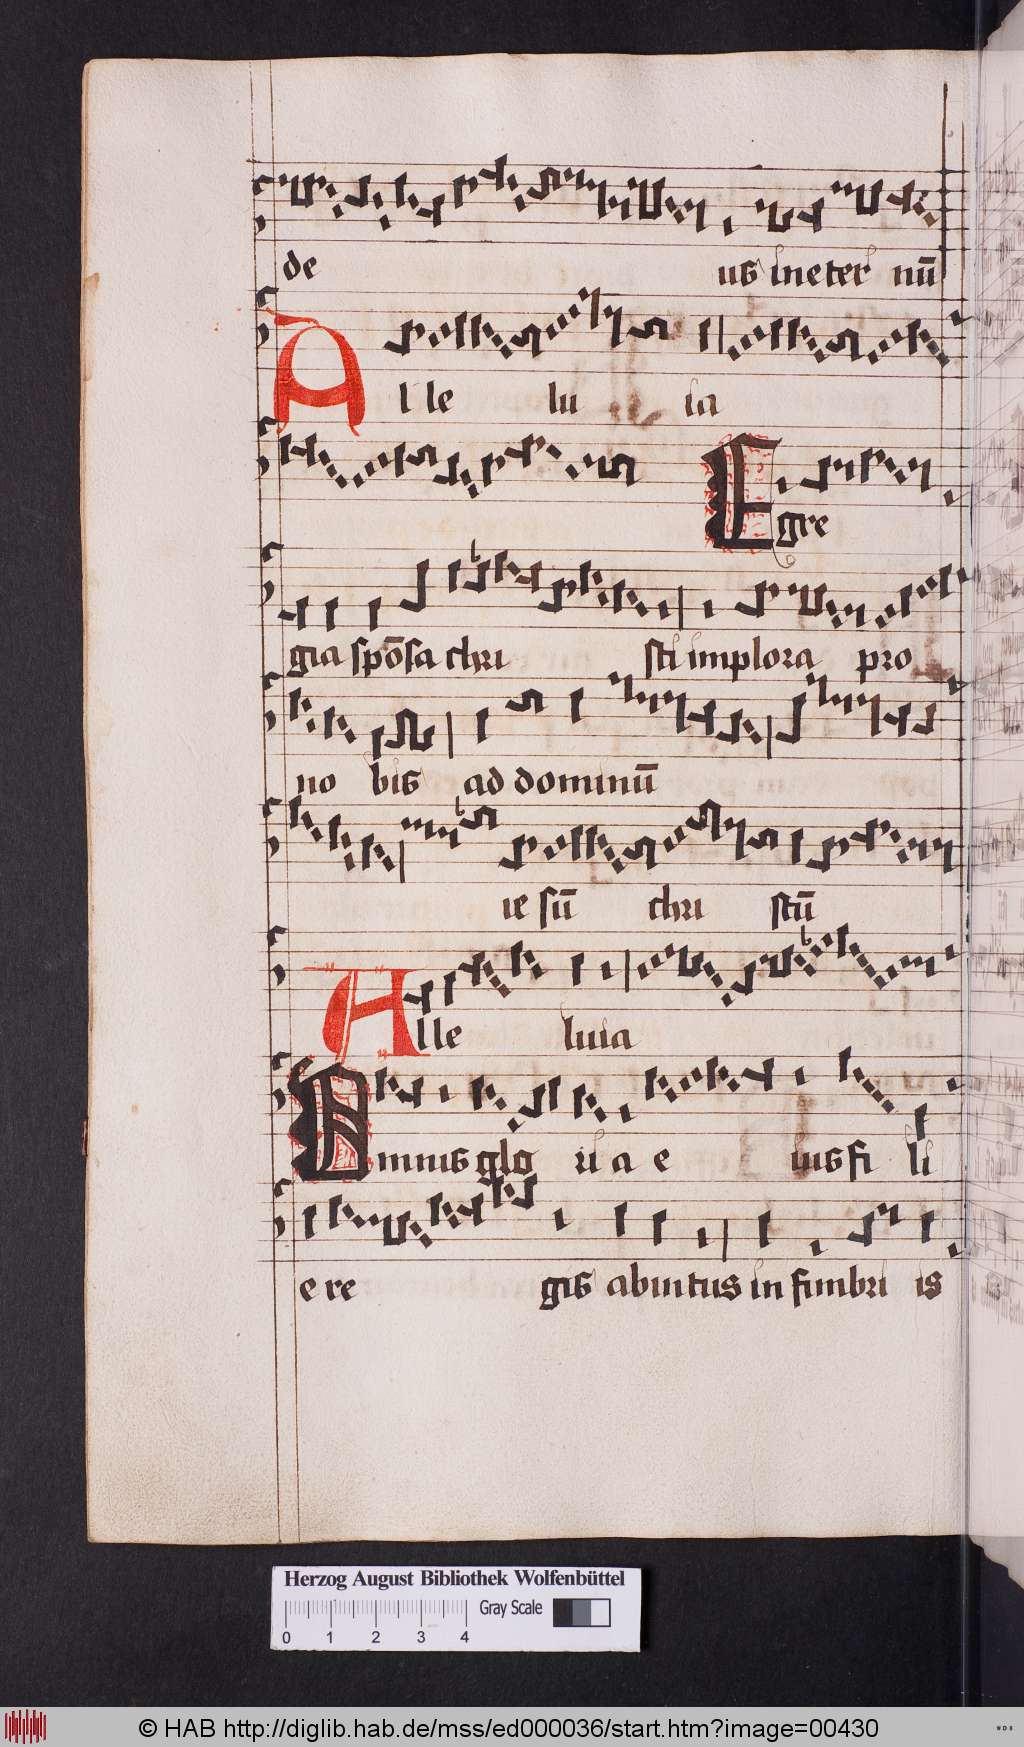 de us in eter nū
A l le lu ia
Egre
gia spōsa chri sti implora pro
no bis ad dominū
ie sū chri stū
Alle luia
Omnis glo ri a e ius fi li
e re gis abintus in fimbri is
Herzog August Bibliothek Wolfenbüttel
Gray Scale
0 1 2 3 4
© HAB http://diglib.hab.de/mss/ed000036/start.htm?image=00430